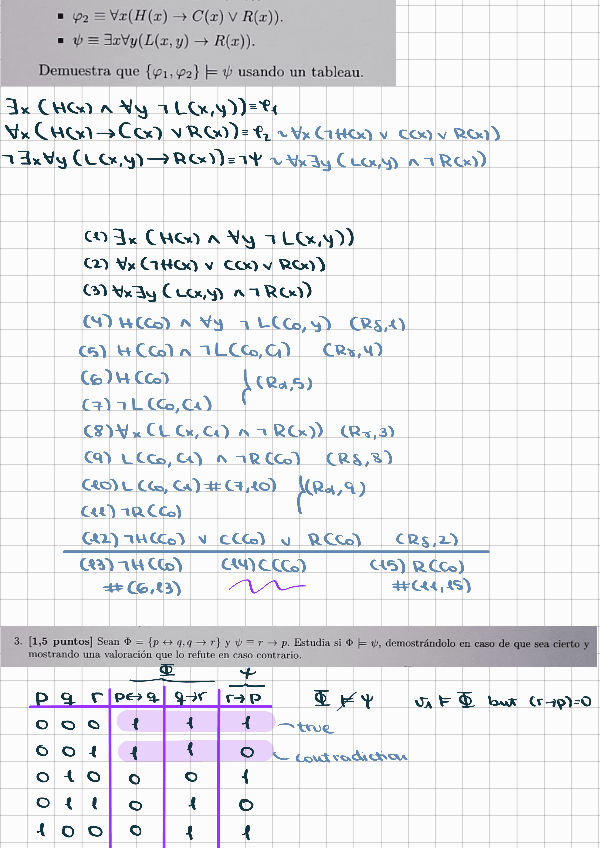 ▪ φ₂ ≡ ∀x(H(x) → C(x) ∨ R(x)).
▪ ψ ≡ ∃x∀y(L(x, y) → R(x)).
Demuestra que {φ₁, φ₂} ⊨ ψ usando un tableau.
∃x (H(x) ∧ ∀y ¬L(x,y)) ≡ φ₁
∀x (H(x) → C(x) ∨ R(x)) ≡ φ₂ ~ ∀x (¬H(x) ∨ C(x) ∨ R(x))
¬∃x∀y (L(x,y) → R(x)) ≡ ¬ψ ~ ∀x∃y (L(x,y) ∧ ¬R(x))
(1) ∃x (H(x) ∧ ∀y ¬L(x,y))
(2) ∀x (¬H(x) ∨ C(x) ∨ R(x))
(3) ∀x∃y (L(x,y) ∧ ¬R(x))
(4) H(C₀) ∧ ∀y ¬L(C₀,y) (Rδ,1)
(5) H(C₀) ∧ ¬L(C₀,C₁) (Rγ,4)
(6) H(C₀) (Rα,5)
(7) ¬L(C₀,C₁)
(8) ∀x (L(x,C₁) ∧ ¬R(x)) (Rγ,3)
(9) L(C₀,C₁) ∧ ¬R(C₀) (Rδ,8)
(10) L(C₀,C₁) #(7,10) (Rα,9)
(11) ¬R(C₀)
(12) ¬H(C₀) ∨ C(C₀) ∨ R(C₀) (Rδ,2)
(13) ¬H(C₀) (14) C(C₀) (15) R(C₀)
#(6,13) #(11,15)
3. [1,5 puntos] Sean Φ = {p ↔ q, q → r} y ψ = r → p. Estudia si Φ ⊨ ψ, demostrándolo en caso de que sea cierto y
mostrando una valoración que lo refute en caso contrario.
Φ ψ
p q r p↔q q→r r→p Φ ⊭ ψ v₁ ⊨ Φ but (r→p)=0
0 0 0 1 1 1 true
0 0 1 1 1 0 contradiction
0 1 0 0 0 1
0 1 1 0 1 0
1 0 0 0 1 1